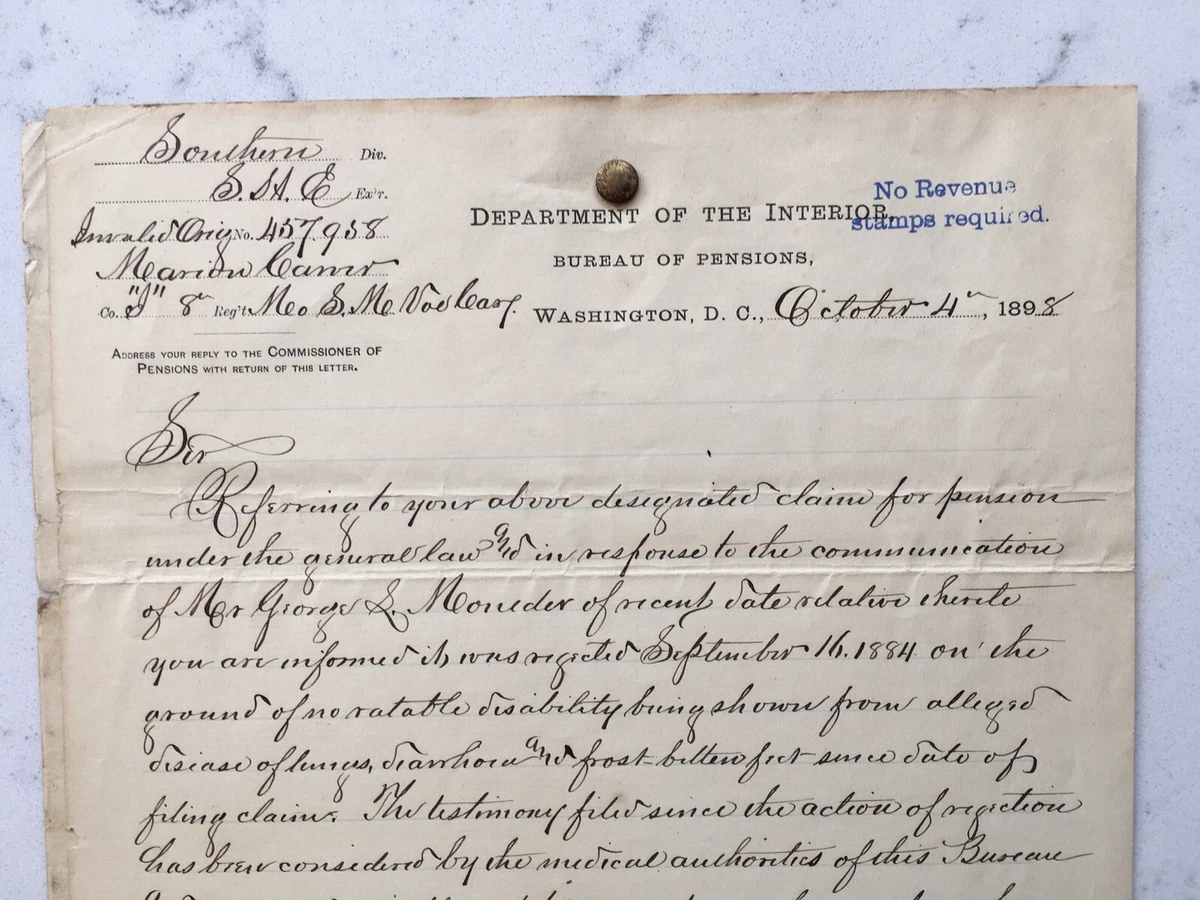 Southern Div.
S. H. E Ex'r.
Invalid Orig No. 457.958
Marion
Co. "I" 8" Reg't. Mo S. M. Vol Cav.
ADDRESS YOUR REPLY TO THE COMMISSIONER OF
PENSIONS WITH RETURN OF THIS LETTER.
DEPARTMENT OF THE INTERIOR,
No Revenue
stamps required.
BUREAU OF PENSIONS,
WASHINGTON, D. C., October 4", 1898
Sir
Referring to your above designated claim for pension
under the general law and in response to the communication
of Mr George L. of recent date relative thereto
you are informed it was rejected September 16. 1884 on the
ground of no ratable disability being shown from alleged
disease of lungs, diarrhoea and frost-bitten feet since date of
filing claim. The testimony filed since the action of rejection
has been considered by the medical authorities of this Bureau